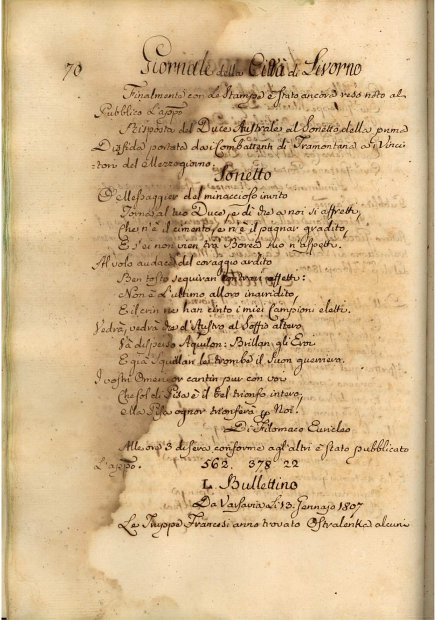 70 Giornale della Città di Livorno
Finalmente con le Stampe è stato ancora reso noto al
Pubblico L'appo
Risposta del Duce Australe al Sonetto della prima
Disfida portata dai Combattenti di Tramontana a i Vinci
tori del Mezzogiorno.
Sonetto
O Messaggier del minaccioso invito
Torna al tuo Duce, e di che a noi si affretti,
Che n'è il cimento, e n'è il pugnar gradito,
E s'ei non vien trà Borea suo n'aspetti.
Al volo audace del coraggio ardito
Ben tosto seguiran contrari effetti:
Non è L'ultimo alloro inaridito,
E il crin ne han cinto i miei Campioni eletti.
Vedrà, vedrà che d'Austro al Soffio altero
Và disperso Aquilon: Brillan gli Eroi
E già Squillan le trombe il Suon guerriero.
I vostri Omeri or cantin pur con voi
Che sol di Pisa è il bel trionfo intero,
e La Pisa ognor trionferà p Noi.
Di Filomaco Euricleo
Alle ore 3 di sera conforme agl'altri è stato pubblicato
L'appo. 562. 378 22
L. Bullettino
Da Varsavia Li 13. Gennajo 1807
Le Truppe Francesi anno trovato Ostralenka alcuni